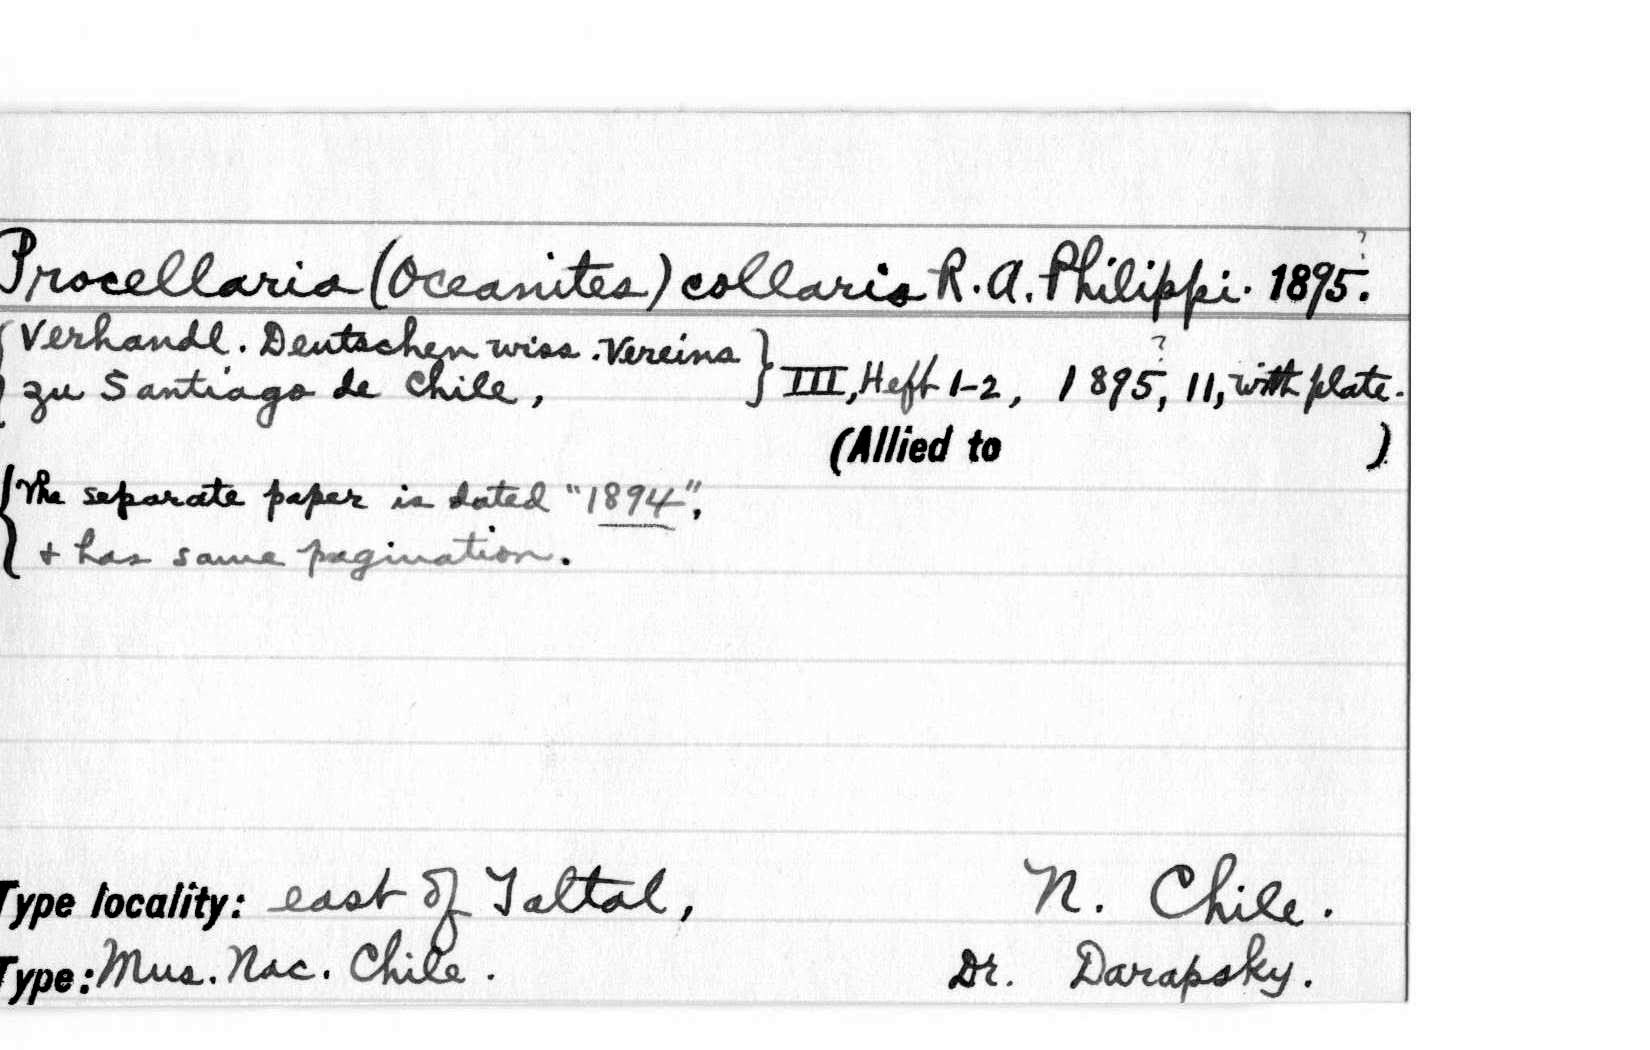 Procellaria (Oceanites) collaris R. A. Philippi. 1895?.
{Verhandl. Deutschen wiss. Vereins
zu Santiago de Chile,} III, Heft 1-2, 1895?, 11, with plate.
(Allied to )
{The separate paper is dated "1894",
+ has same pagination.
Type locality: east of Taltal, N. Chile.
Type: Mus. Nac. Chile. Dr. Darapsky.